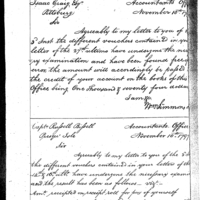 Isaac Craig Esqr Accountants Offi
Pittsburg November 16th 179
Sir
Agreeably to my letter to you of the
5 Inst the different vouchers contained in your
letter of the 27th ultimo have undergone the nec
ry examination and have been found free
ror the amount will accordingly be pas
the credit of your account on the books of this
Office being One thousand & seventy four
I am &c
Wm Simmons
Capt Russell Bissell Accountants Office
November 16th 179
Sir
Agreeably to my letter to you of the 5
the different vouchers contained in your letters of the
12 & 10 ult. have undergone the necessary exami
and the result has been as follows
Amt. receipted on pay roll for pay of yourself